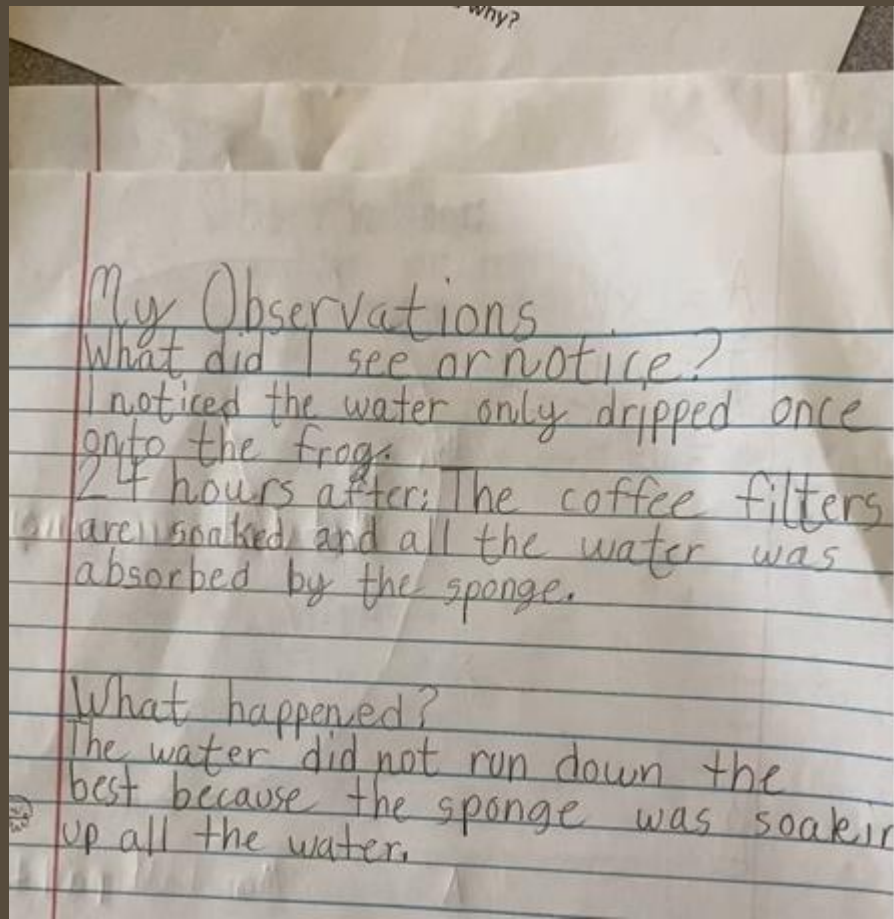 why?
My Observations
What did I see or notice?
I noticed the water only dripped once
onto the frog.
24 hours after: The coffee filters
are soaked and all the water was
absorbed by the sponge.
What happened?
The water did not run down the
best because the sponge was soakin
up all the water.